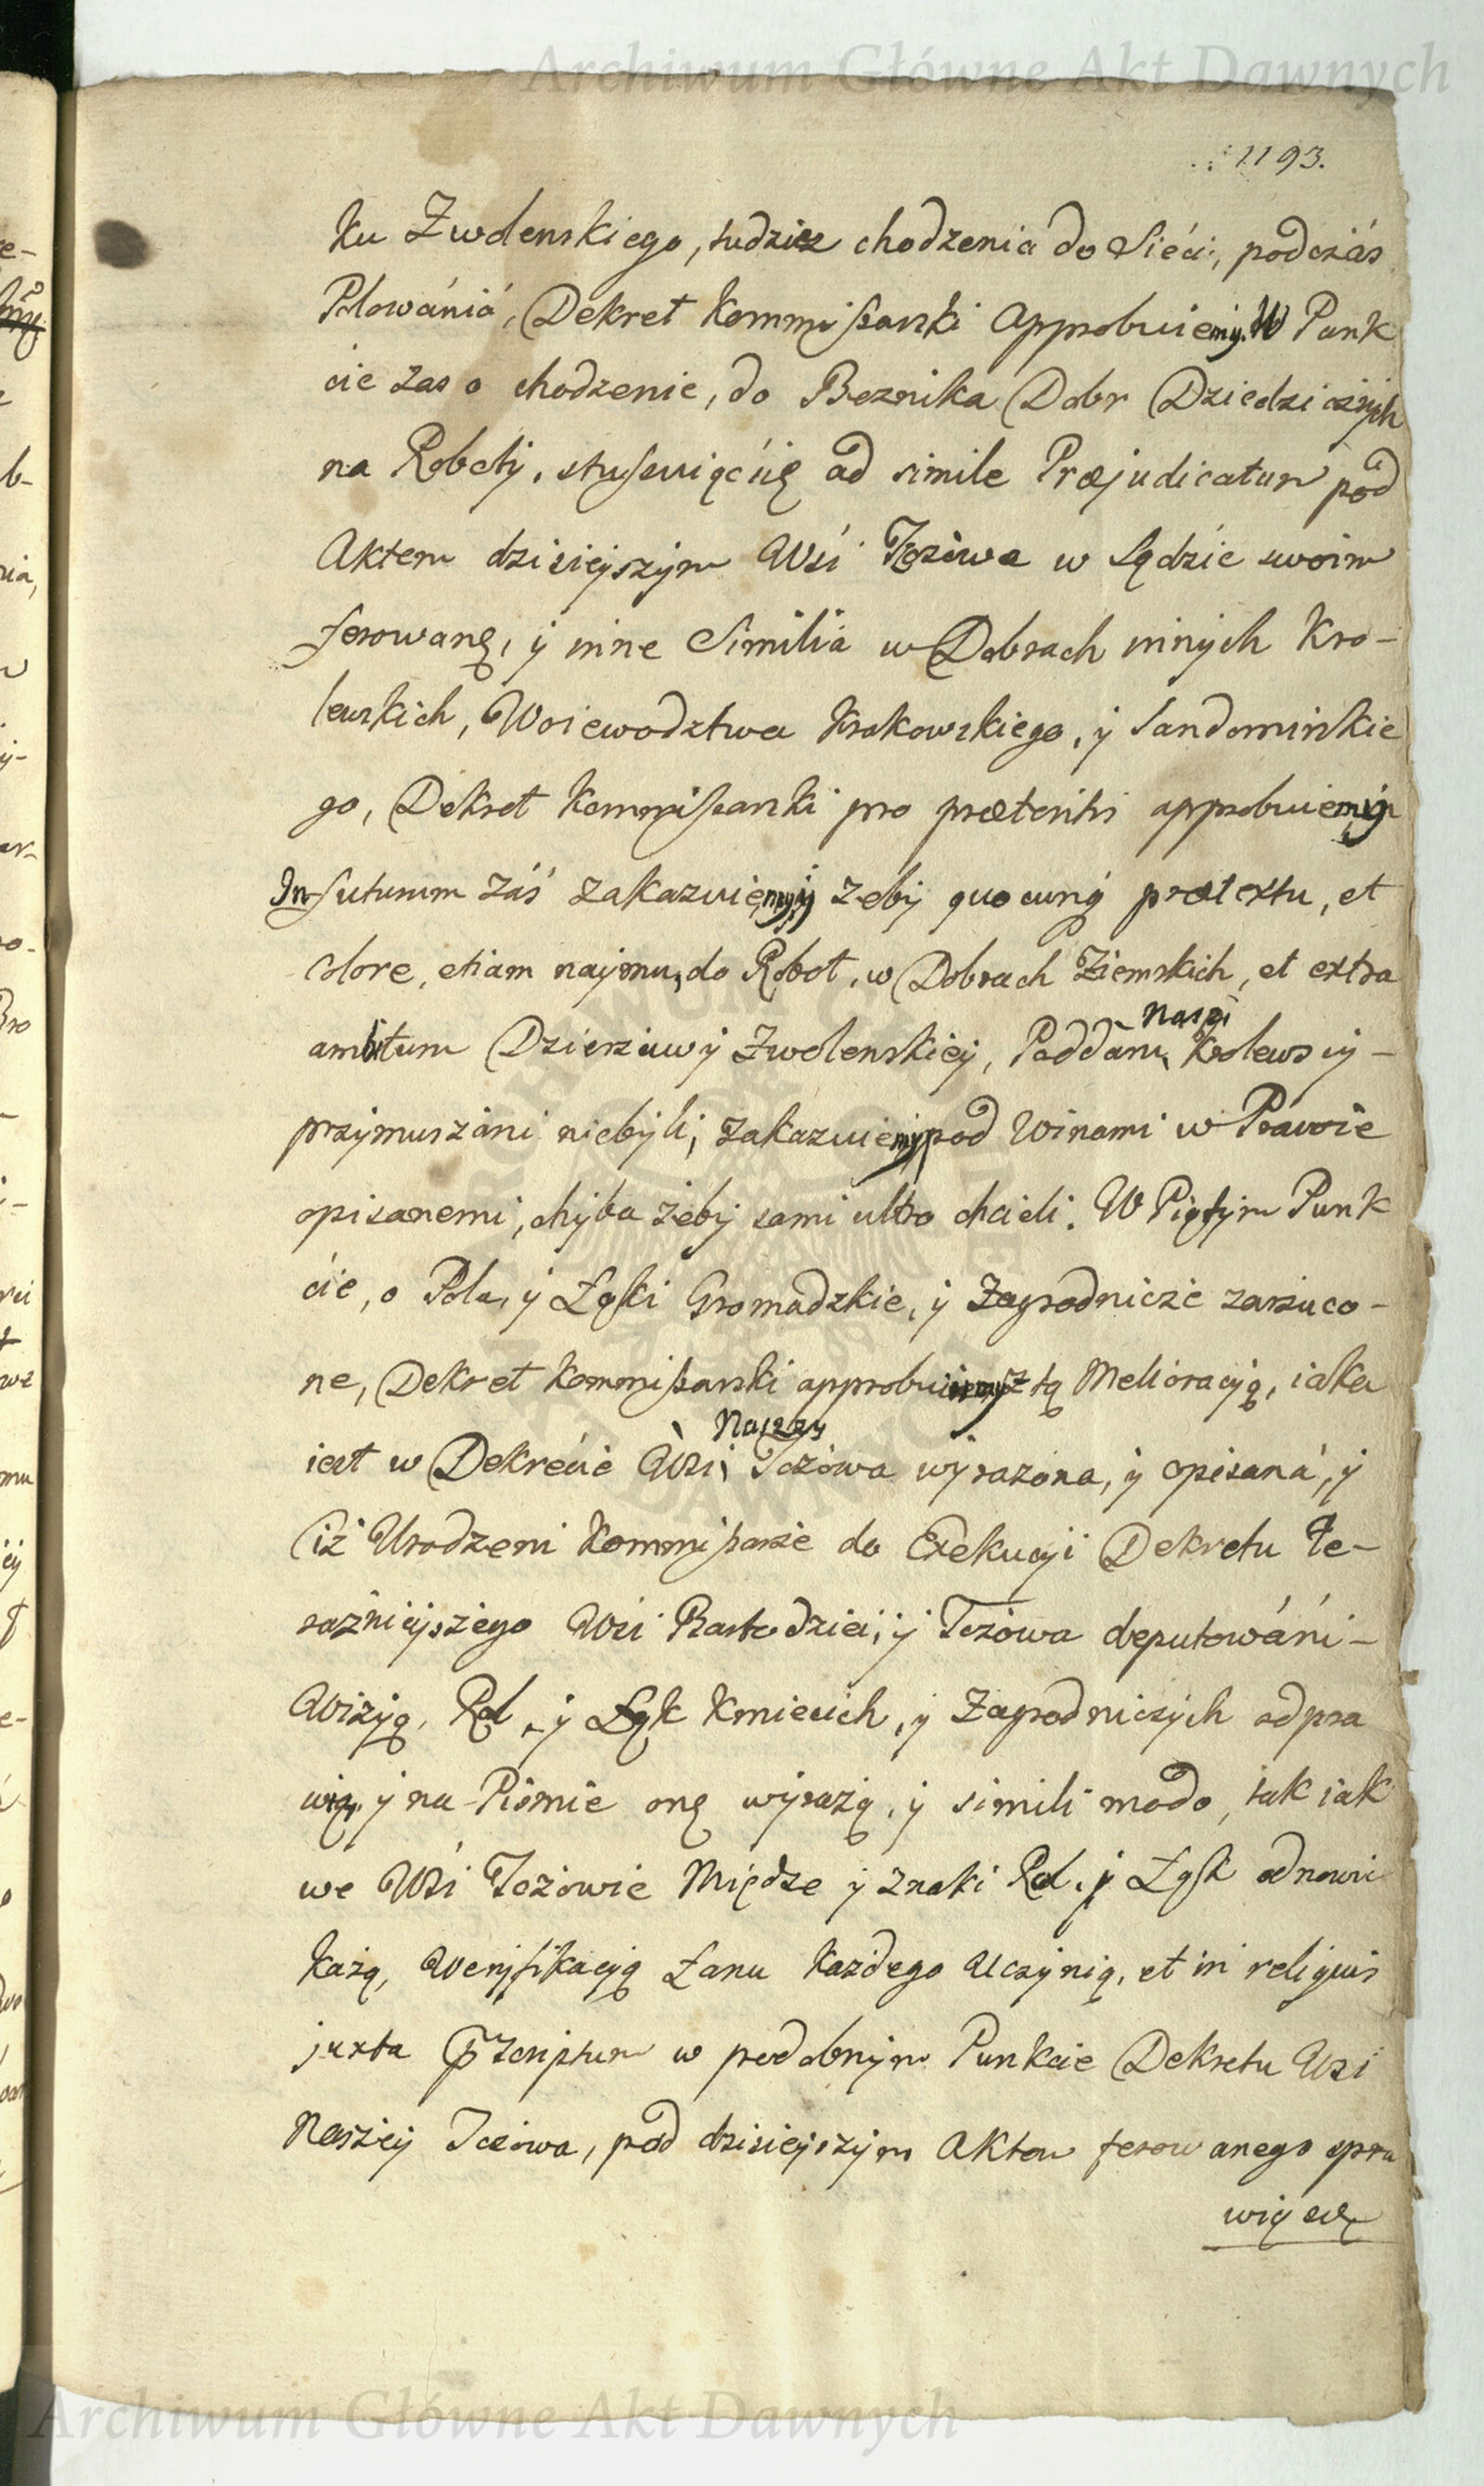 Archiwum Główne Akt Dawnych
1193.
ku Zwolenskiego, tudziesz chodzenia do Sieci, podczás
Polowániá, Dekret Kommissarski approbuiemy. W Punk
cie zas o chodzenie, do Beznika Dobr Dziedzicznych
na Roboty, stusuiąc się ad simile Præjudicatum pod
Aktem dzisieyszym Wsi Tczowa w Sądzie swoim
ferowanę, y inne Similia w Dobrach innych Kro-
lewskich, Woiewodztwa Krakowskiego, y Sandomirskie
go, Dekret Kommissarski pro præteritis approbuiemy
In futurum záś zakazuiemy żeby quocunq́ prætextu, et
colore, etiam naymu, do Robot, w Dobrach Ziemskich, et extra
ambitum Dzierzawy Zwolenskiey, Poddani Nasi Krolewscy -
przymuszáni niebyli, zakazuiemy pod Winami w Prawie
opisanemi, chyba żeby sami ultro chcieli. W Piątym Punk
cie, o Pola, y Łąki Gromadzkie, y Zagrodnicze zarzuco-
ne, Dekret Kommissarski approbuiemy z tą Melioracyą, iaka
iest w Dekrecie Wsi Naszzy Tczowa wyrazona, y opisaná, y
iż Urodzeni Kommissarze do Exekucyi Dekretu te-
raznieyszego Wsi Bartodziei, y Tczowa deputowáni-
Wizyą, Rol, y Łąk Kmiecich, y Zagrodniczych odpra
wią, y na Pismie onę wyrażą, y simili modo, tak iak
we Wsi Tczowie Miedze y znaki Rol, y Łąk odnowić
każą, Weryfikacyą Łanu każdego uczynią, et in reliquis
juxta p̄scriptum w podobnym Punkcie Dekretu Wsi
Naszey Tczowa, pod dzisieyszym Aktem ferowanego spra
wią się
Archiwum Główne Akt Dawnych